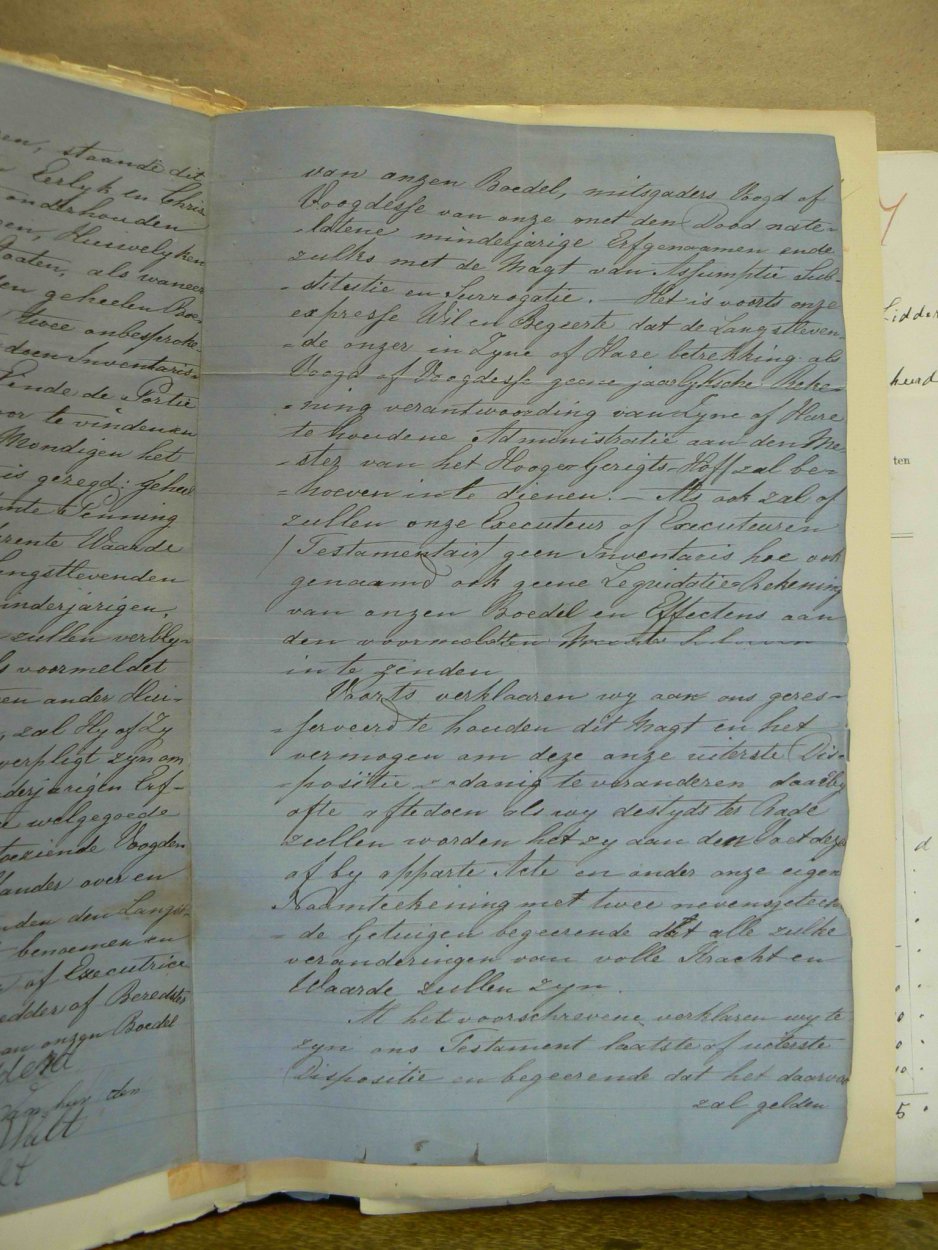 en, staande dit
Eerlyk en Chris
onderhouden
en, Huwelyken
Staaten, als waneer
den geheelen Boe-
twee onbesproke-
deen Inventaris-
Einde de Portie
oor te vinden en
Mondigen het
is gezegd: geheel
ante Penning
rente Waarde
angstlevenden
inderjarigen,
zullen verbly-
s voormeldet
en ander Huu-
, zal Hy of Zy
verpligt zyn om
derjarigen Erf-
welgegoede
toeziende Voogden
lander over en
den den Langst-
benoemen en
of Executrice
edder of Beredster
an onzen Boedel
van onzen Boedel, mitsgaders Voogd of
Voogdesse van onze met den Dood nate-
-latene minderjarige Erfgenaamen ende
zulks met de Magt van Assumptie Sub-
-stitutie en Surrogatie. — Het is voorts onze
expresse Wil en Begeerte dat de Langstleven-
-de onzer in Zyne of Hare betrekking als
Voogd of Voogdesse geene jaarlyksche Reke-
-ning verantwoording van Zyne of Hare
te houdene Administratie aan den Me-
-ster van het Hooge Gerigts-Hoff zal be-
-hoeven in te dienen. — Als ook zal of
zullen onze Executeur of Executeuren
(Testamentair) geen Inventaris hoe ook
genaamd ook geene Lequidatie=Rekening
van onzen Boedel en Effecten aan
den voormeldten
in te zenden
Voorts verklaaren wy aan ons geres-
-serveerd te houden dit Magt en het
vermogen om deze onze uiterste Dis-
-positie zodanig te veranderen daarby
ofte aftedoen als wy destyds te Rade
zullen worden het zy aan den voet dezes
of by apparte Acte en onder onze eigen
Naamteekening met twee nevensgeteek
-de Getuigen begeerende dat alle zulke
veranderingen van volle Kracht en
Waarde zullen zyn.
Al het voorschrevene verklaren wy te
zyn ons Testament laatste of uiterste
Dispositie en begeerende dat het daarvoor
zal gelden
Lidder
heerd
ten
d
5